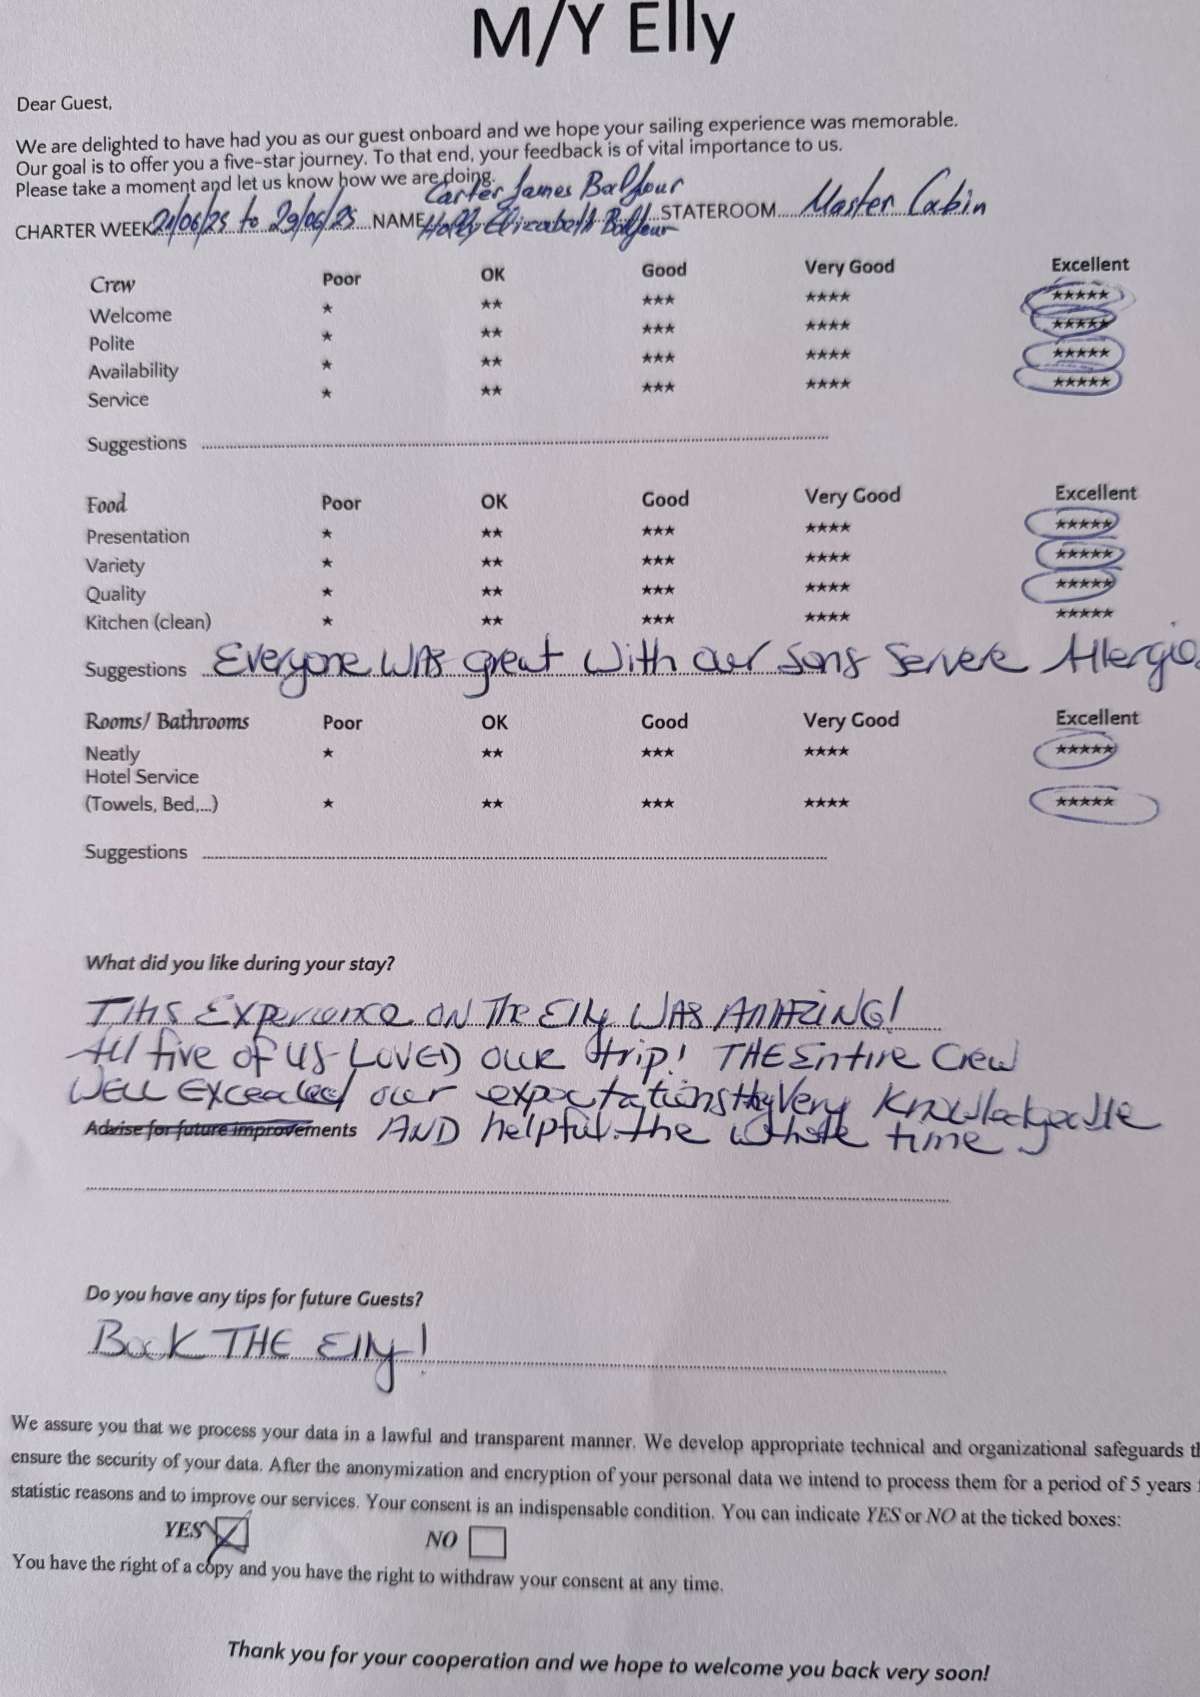 M/Y Elly
Dear Guest,
We are delighted to have had you as our guest onboard and we hope your sailing experience was memorable.
Our goal is to offer you a five-star journey. To that end, your feedback is of vital importance to us.
Please take a moment and let us know how we are doing.
Carter James Balfour
CHARTER WEEK 21/06/25 to 29/06/25 NAME Holly Elizabeth Balfour STATEROOM Master Cabin
Crew Poor OK Good Very Good Excellent
Welcome ★ ★★ ★★★ ★★★★ ★★★★★
Polite ★ ★★ ★★★ ★★★★ ★★★★★
Availability ★ ★★ ★★★ ★★★★ ★★★★★
Service ★ ★★ ★★★ ★★★★ ★★★★★
Suggestions
Food Poor OK Good Very Good Excellent
Presentation ★ ★★ ★★★ ★★★★ ★★★★★
Variety ★ ★★ ★★★ ★★★★ ★★★★★
Quality ★ ★★ ★★★ ★★★★ ★★★★★
Kitchen (clean) ★ ★★ ★★★ ★★★★ ★★★★★
Suggestions Everyone WAS great With our Sons Servere
Rooms/ Bathrooms Poor OK Good Very Good Excellent
Neatly ★ ★★ ★★★ ★★★★ ★★★★★
Hotel Service
(Towels, Bed,...) ★ ★★ ★★★ ★★★★ ★★★★★
Suggestions
What did you like during your stay?
THIS Experience ON The Elly WAS AMAZING!
All five of us LOVED our trip! THE Entire Crew
WELL Exceeded our expectations Very Knowledgeable
Advise for future improvements AND helpful the whole time
Do you have any tips for future Guests?
Book THE Elly!
We assure you that we process your data in a lawful and transparent manner. We develop appropriate technical and organizational safeguards
ensure the security of your data. After the anonymization and encryption of your personal data we intend to process them for a period of 5 years
statistic reasons and to improve our services. Your consent is an indispensable condition. You can indicate YES or NO at the ticked boxes:
YES NO
You have the right of a copy and you have the right to withdraw your consent at any time.
Thank you for your cooperation and we hope to welcome you back very soon!